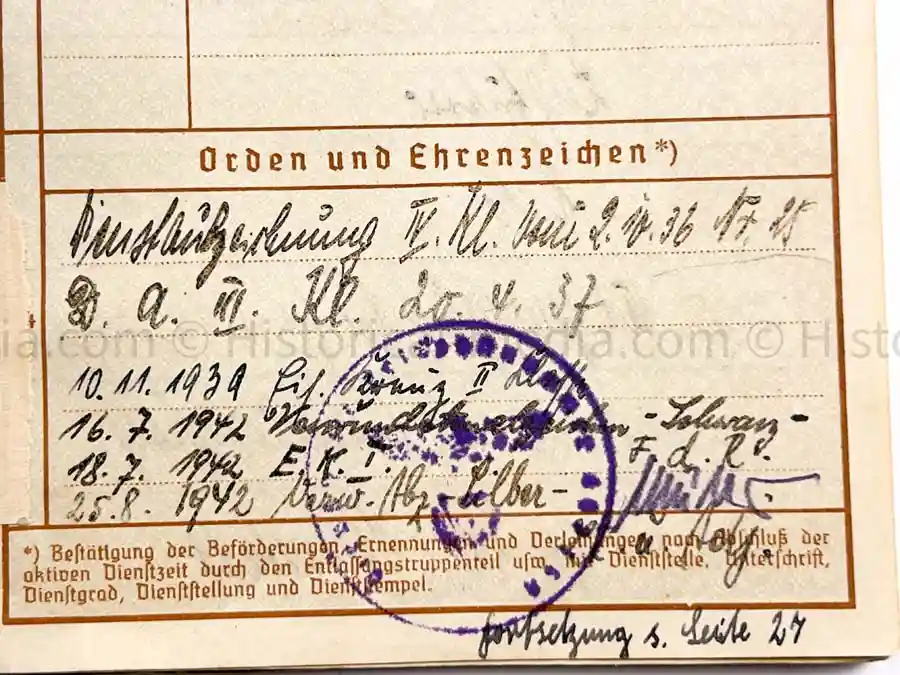 Orden und Ehrenzeichen*)
Dienstauszeichnung IV. Kl. vom 2. 10. 36 Nr. 25
D. A. III. Kl. 20. 4. 37
10. 11. 1939 Eis. Kreuz II Klasse
16. 7. 1942 Verwundetenabzeichen - Schwarz -
18. 7. 1942 E. K. I. F. d. R.
25. 8. 1942 Verw. Abz. - Silber -
*) Bestätigung der Beförderungen, Ernennungen und Verleihungen nach Abschluß der
aktiven Dienstzeit durch den Entlassungstruppenteil usw. mit Dienststelle, Unterschrift,
Dienstgrad, Dienststellung und Dienststempel.
Fortsetzung s. Seite 27